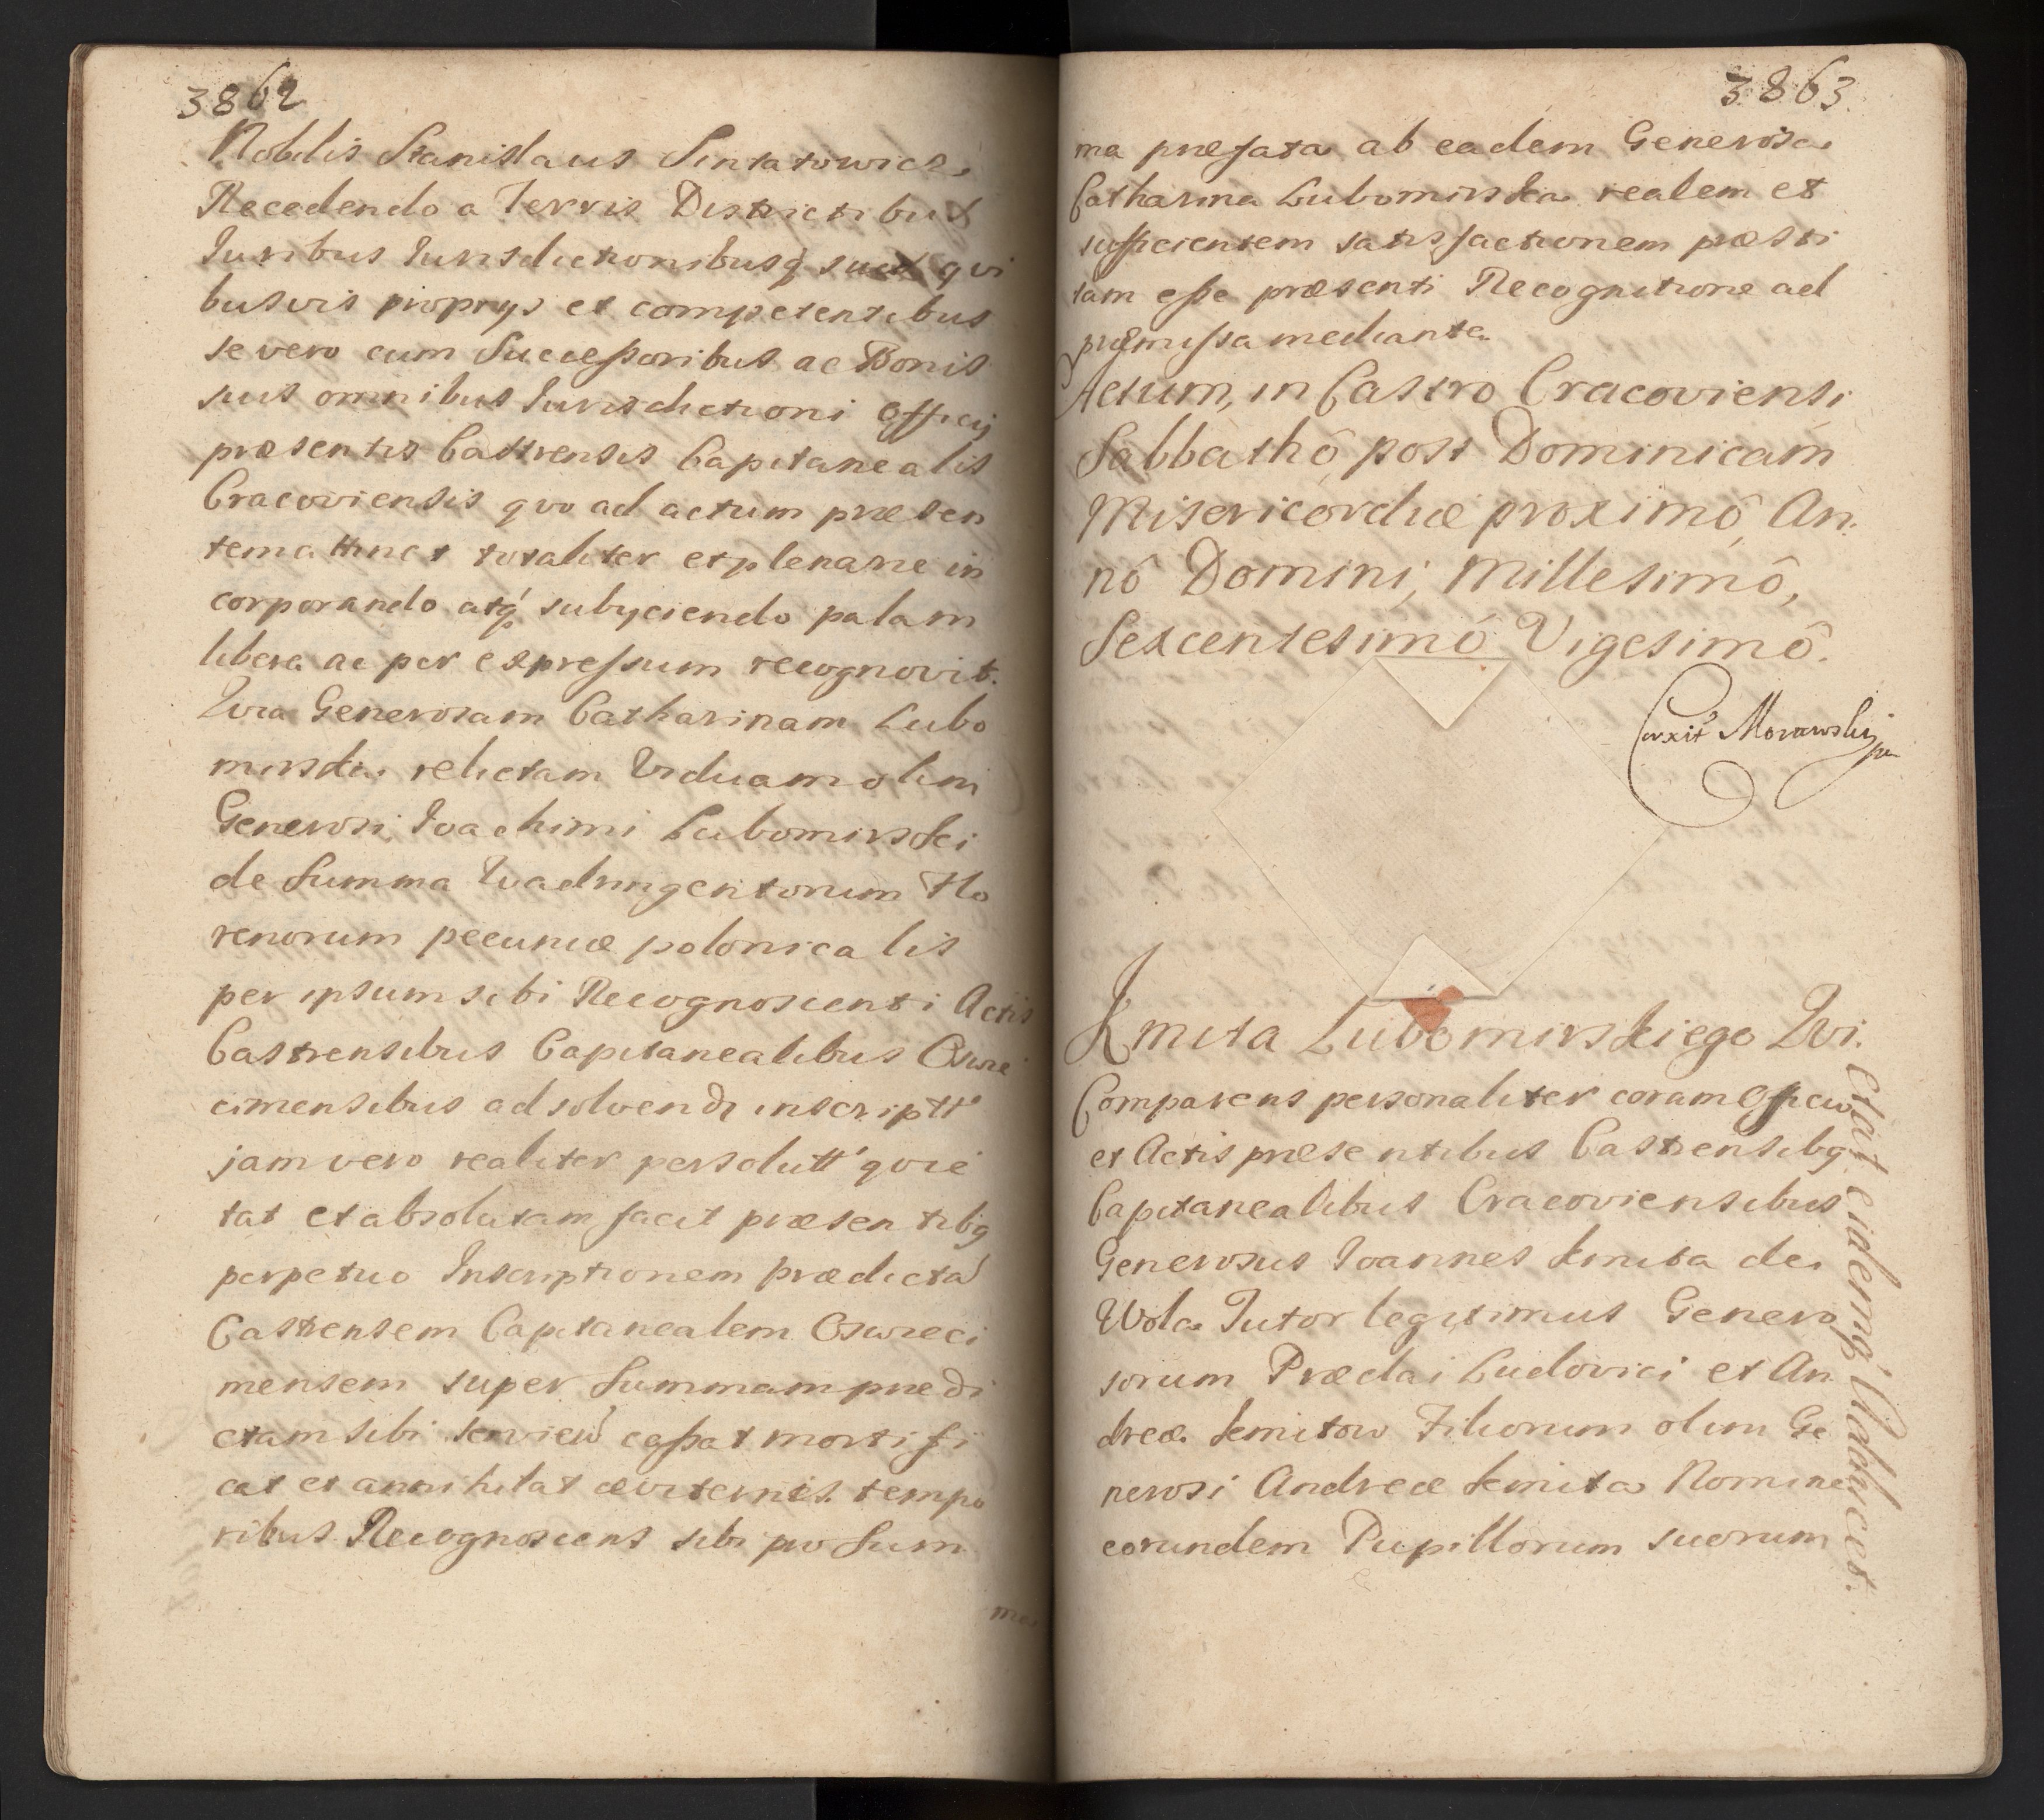 3862
Nobilis Stanislaus Sintatowicz
Recedendo a Terris Districtibus
Iuribus Iurisdictionibusq́ suis qvi
busvis proprys et competentibus
se vero cum Successoribus ac Bonis
suis omnibus Iurisdictioni Officij
præsentis Castrensis Capitanealis
Cracoviensis qvo ad actum præsen
tem attinet totaliter et plenarie in
corporando atq́ subyciendo palam
libere ac per expressum recognovit.
Qvia Generosam Catharinam Lubo
mirska relictam Viduam olim
Generosi Ioachimi Lubomirski
de Summa Qvadringentorum Flo
renorum pecuniæ polonicalis
per ipsum sibi Recognoscenti Actis
Castrensibus Capitanealibus Oswie
cimensibus ad solvendȝ inscriptt'
jam vero realiter persolutt' qvie
tat et absolutam facit præsentibq
perpetuo Inscriptionem prædictá
Castrensem Capitanealem Oswieci
mensem super Summam prædi
ctam sibi servień cassat mortifi
cat et annihilat æviternis tempo
ribus Recognoscens sibi pro Sum
ma
3863
ma præfata ab eadem Generosa
Catharina Lubomirska realem et
sufficientem satisfactionem præsti
tam esse præsenti Recognitione ad
præmissa mediante
Actum, in Castro Cracoviensi
Sabbathô post Dominicam
Misericordiæ proximô, An.
nô Domini, Millesimô,
Sexcentesimô Vigesimô.
Corxit Morawski
Kmita Lubomirskiego Qvi.
Comparens personaliter coram Officio
et Actis præsentibus Castrensibq
Capitanealibus Cracoviensibus
Generosus Ioannes Kmita de
Wola Tutor legitimus Genero
sorum Prædai Ludovici et An
dreæ Kmitow Filiorum olim Ge
nerosi Andreæ Kmita Nomine
eorundem Pupillorum suorum
eidemq́ Adhæret.